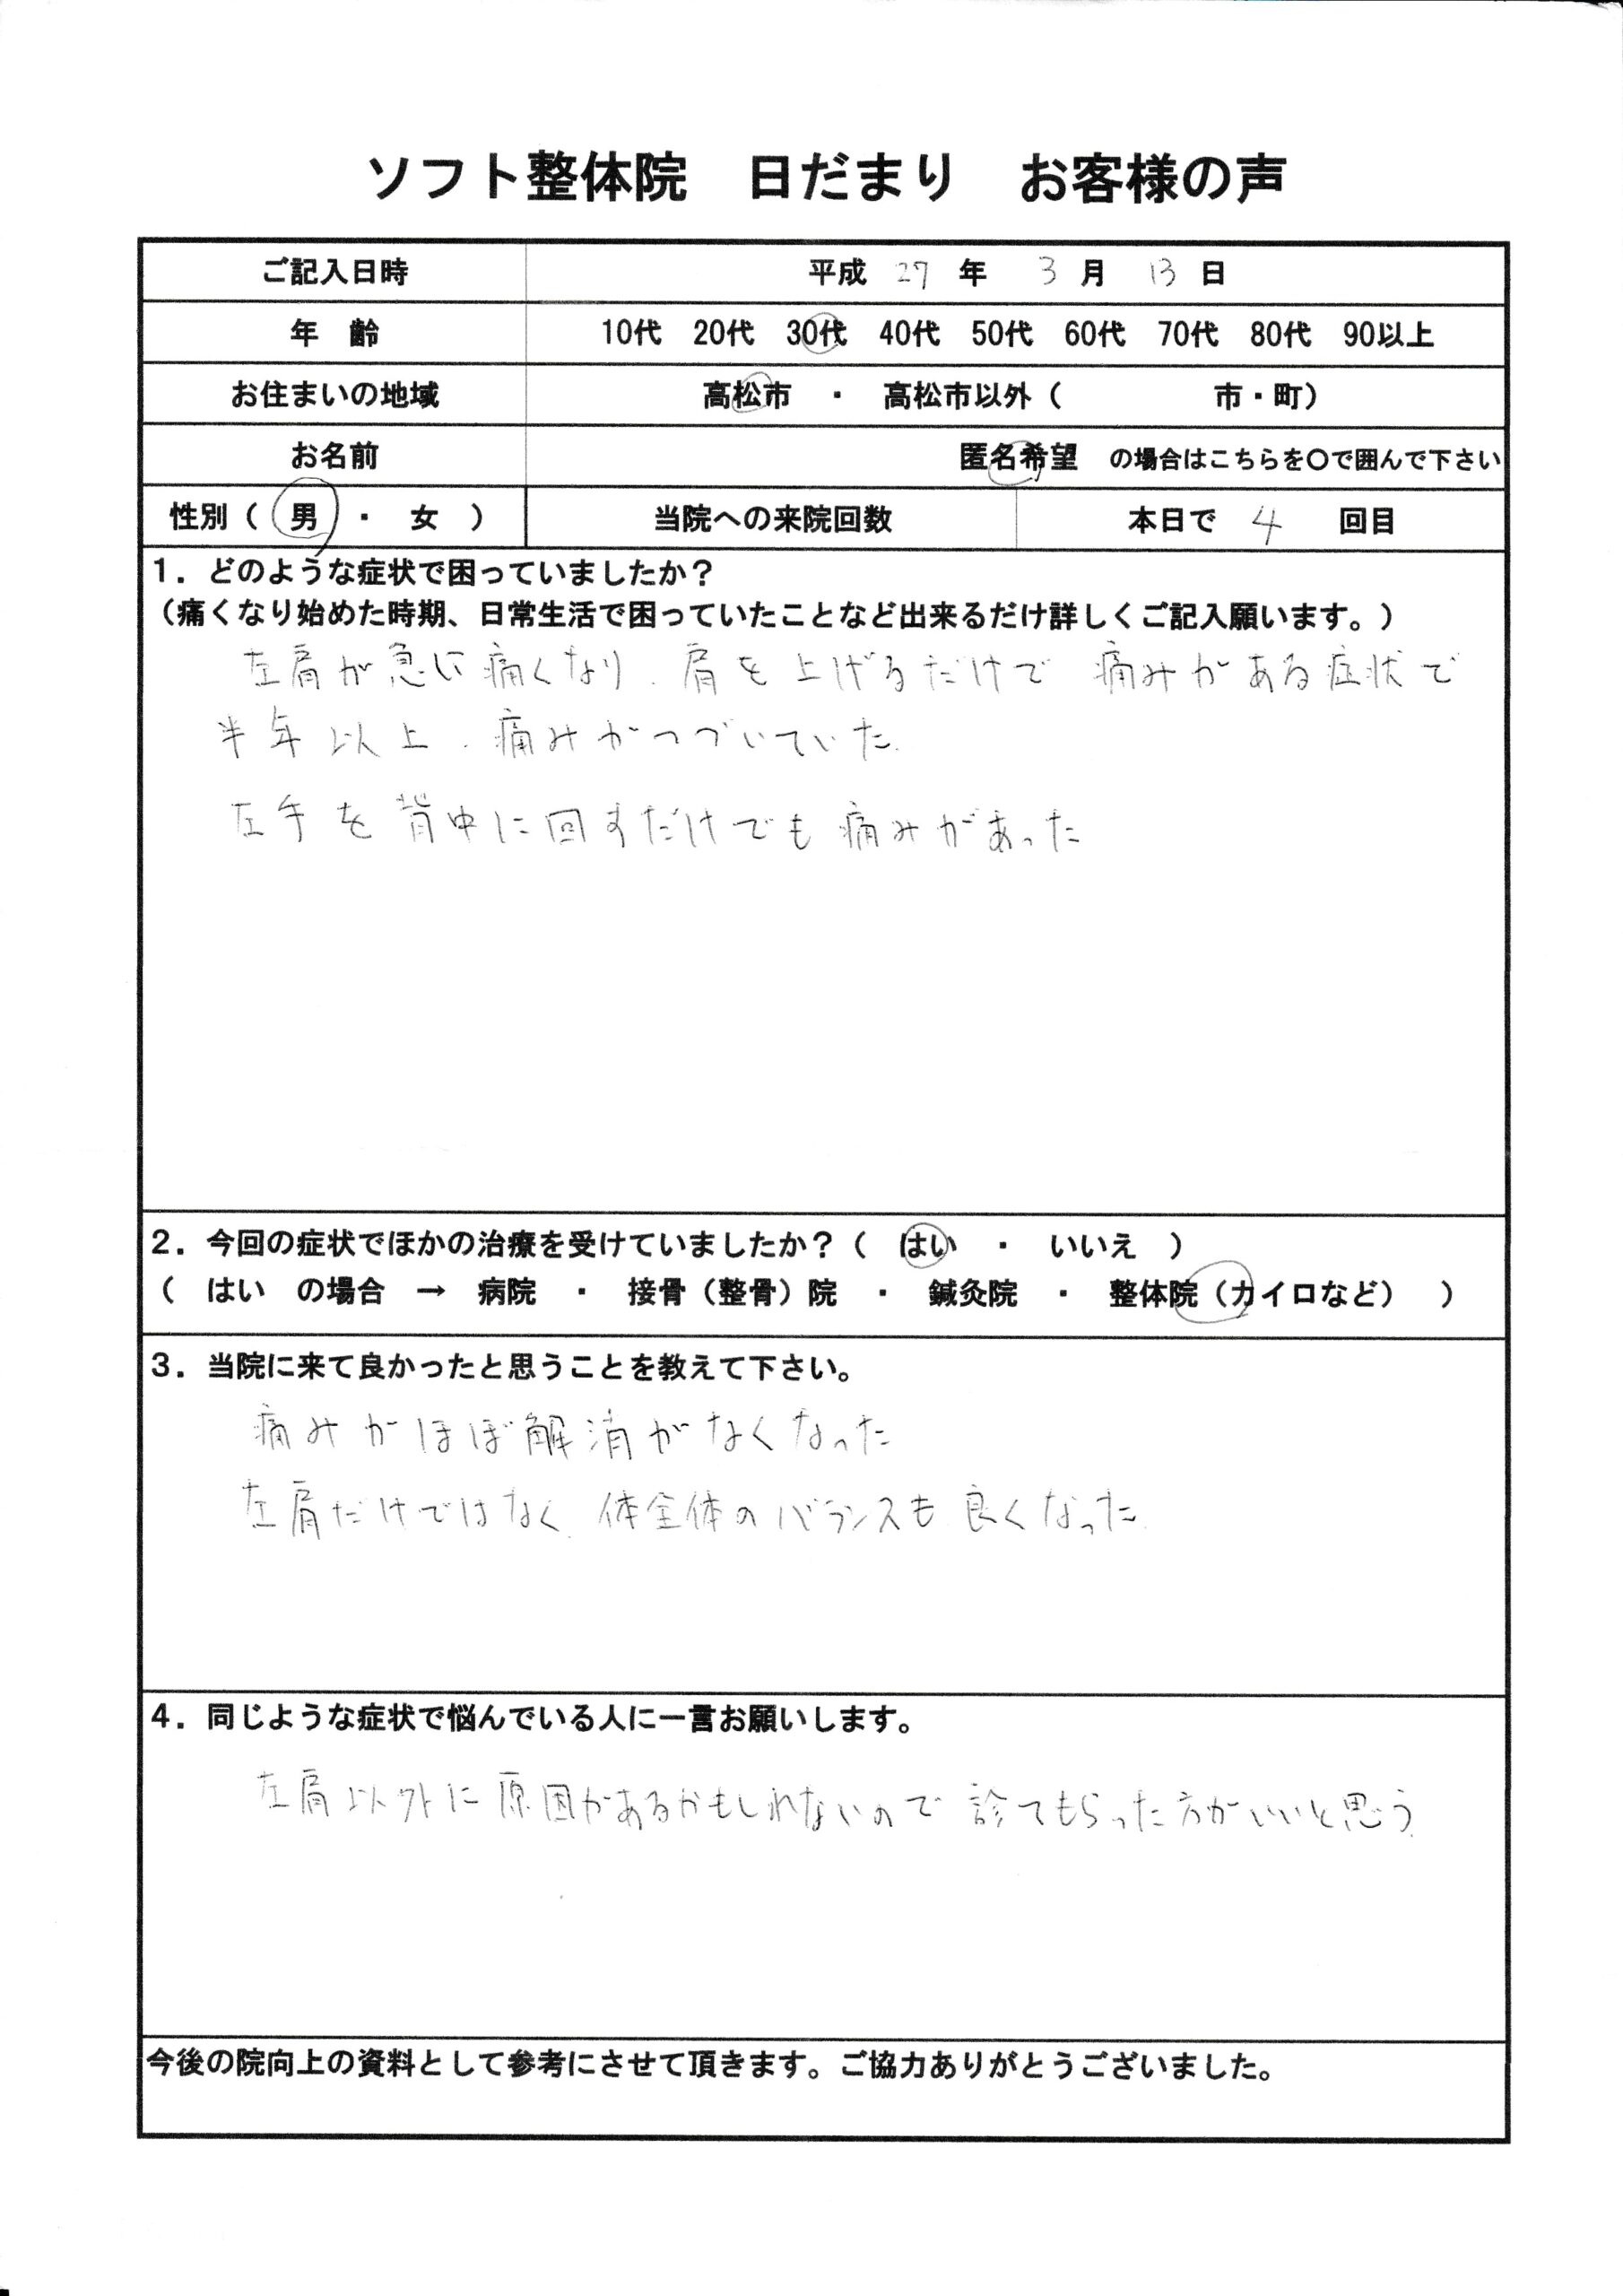 ソフト整体院　日だまり　お客様の声
ご記入日時　平成 27 年 3 月 13 日
年　齢　10代　20代　30代　40代　50代　60代　70代　80代　90以上
お住まいの地域　高松市　・　高松市以外（　　　　　市・町）
お名前　匿名希望　の場合はこちらを〇で囲んで下さい
性別（　男　・　女　）　当院への来院回数　本日で 4 回目
1．どのような症状で困っていましたか？
（痛くなり始めた時期、日常生活で困っていたことなど出来るだけ詳しくご記入願います。）
左肩が急に痛くなり、肩を上げるだけで 痛みがある症状で
半年以上、痛みがつづいていた。
左手を背中に回すだけでも痛みがあった
2．今回の症状でほかの治療を受けていましたか？（　はい　・　いいえ　）
（　はい　の場合　→　病院　・　接骨（整骨）院　・　鍼灸院　・　整体院（カイロなど）　）
3．当院に来て良かったと思うことを教えて下さい。
痛みがほぼ解消がなくなった
左肩だけではなく、体全体のバランスも良くなった。
4．同じような症状で悩んでいる人に一言お願いします。
左肩以外に原因があるかもしれないので 診てもらった方がいいと思う。
今後の院向上の資料として参考にさせて頂きます。ご協力ありがとうございました。